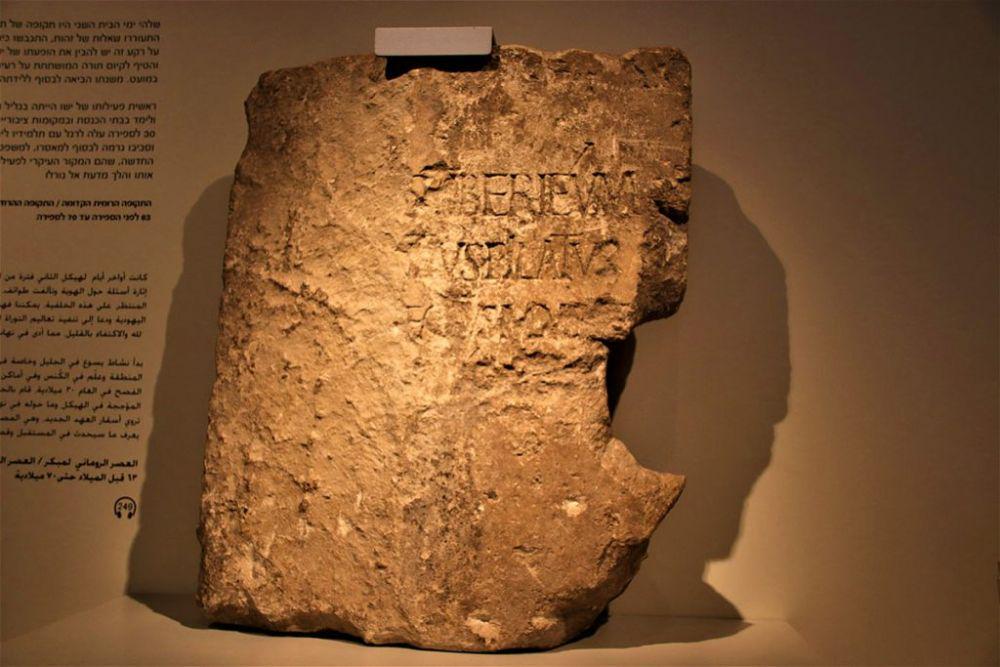 שלהי ימי הבית השני היו תקופה של
התעוררו שאלות של זהות, התגבשו
על רקע זה יש להבין את הופעתו של
והטיף לקיום תורה המושתתת על
במועט. משנתו הביאה לבסוף ללידתה
ראשית פעילותו של ישו הייתה בגליל
ולימד בבתי הכנסת ובמקומות ציבוריים
30 לספירה עלה לרגל עם תלמידיו
וסביבו גרמה לבסוף למאסרו, למשפטו
החדשה, שהם המקור העיקרי
אותו והלך מדעת אל גורלו
התקופה הרומית הקדומה / התקופה
63 לפני הספירה עד 70 לספירה
كانت أواخر أيام الهيكل الثاني فترة من
إثارة أسئلة حول الهوية وتألفت طوائف.
المنتظر على هذه الخلفية. يمكننا
اليهودية ودعا إلى تنفيذ تعاليم التوراة
لله والاكتفاء بالقليل. مما أدى في
بدأ نشاط يسوع في الجليل وخاصة في
المنطقة وعلّم في الكُنس وفي أماكن
الفصح في العام ٣٠ ميلادية. قام
المؤججة في الهيكل وما حوله في
تروي أسفار العهد الجديد. وهي
يعرف ما سيحدث في المستقبل
العصر الروماني المبكر / العصر
٦٣ قبل الميلاد حتى ٧٠ ميلادية
249
TIBERIEVM
TIVSPILATVS